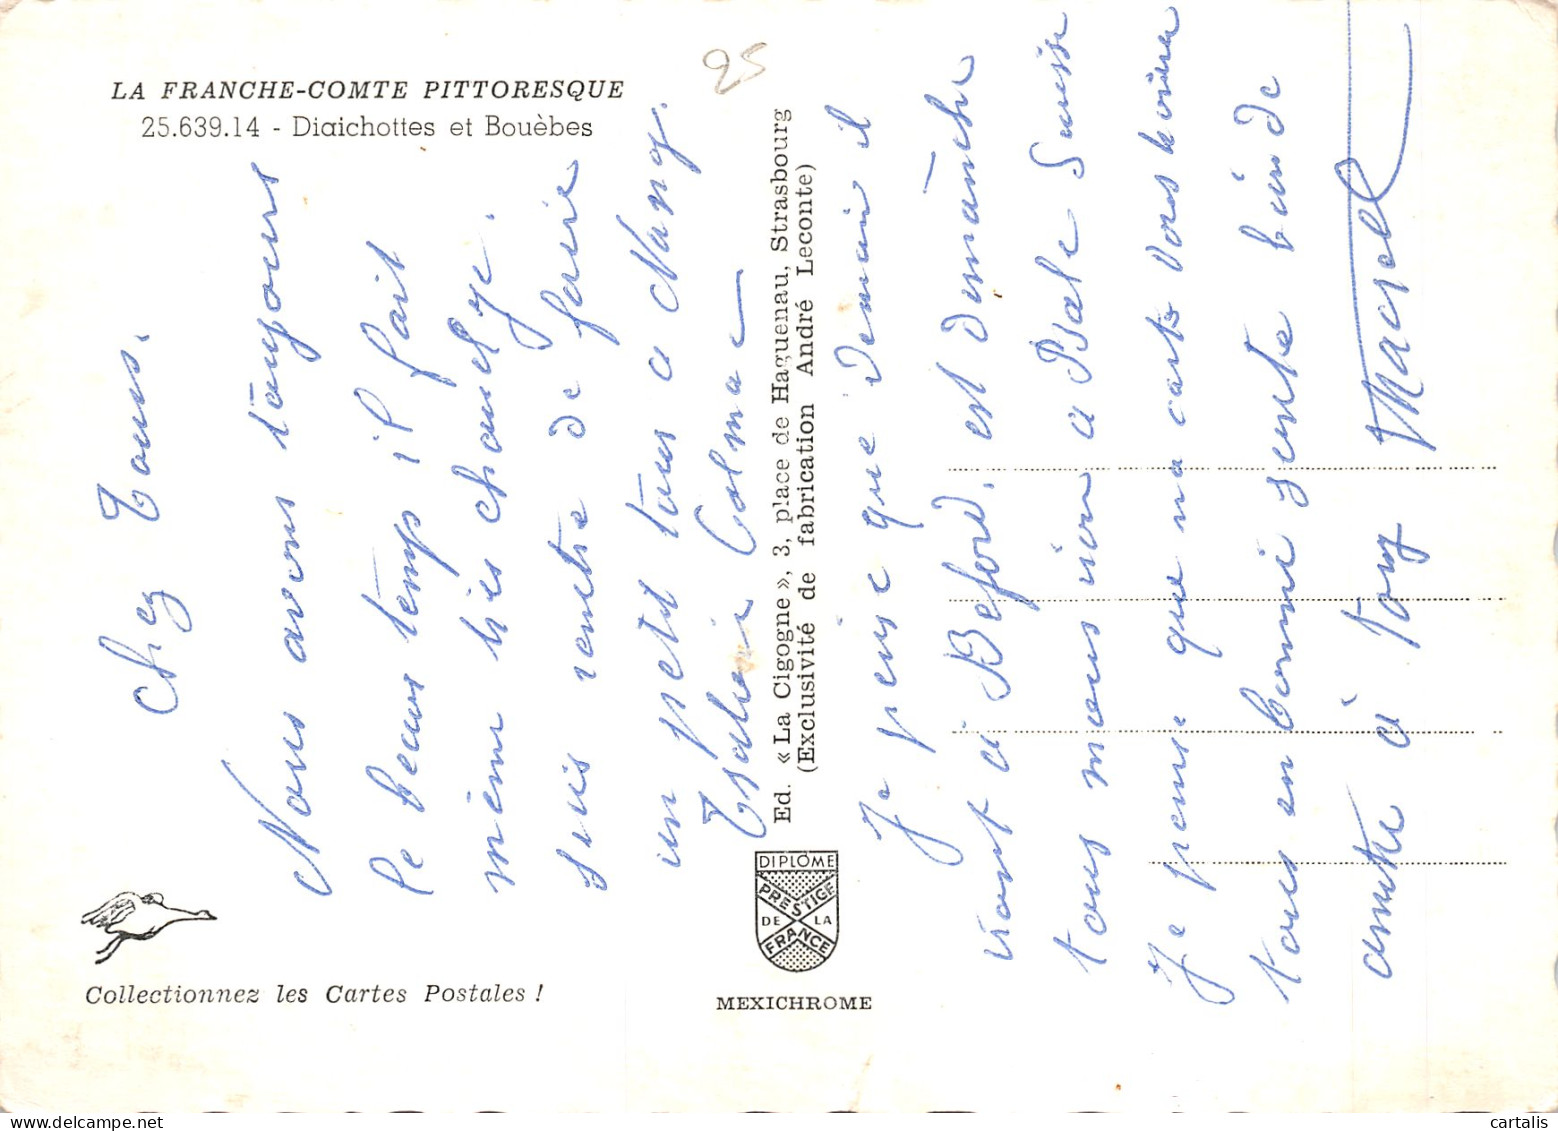 LA FRANCHE-COMTE PITTORESQUE
25.639.14 - Diaichottes et Bouèbes
25
Chez Tous.
Nous avons toujours
le beaux temps il fait
même très chaud je.
suis rentre de faire
un petit tour a Nancy.
Colmar
Je pense que demain il
iront à Beford. est dimanche
tous nous iron a Bale Suisse
Je pense que ma carte vous
tous en bonne sente
à
Marcel
Ed. « La Cigogne », 3, place de Haguenau, Strasbourg
(Exclusivité de fabrication André Leconte)
DIPLÔME
PRESTIGE
DE LA
FRANCE
MEXICHROME
Collectionnez les Cartes Postales !
cartalis